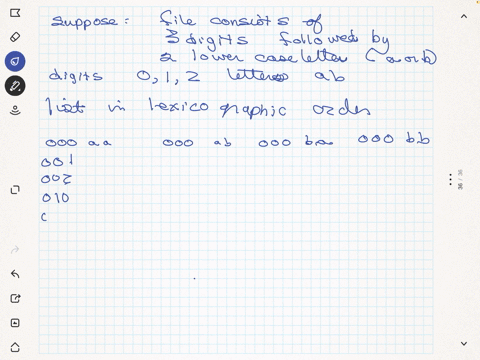 suppose: file consists of
3 digits followed by
a lower case letter (a or b)
digits 0, 1, 2 letters ab
list in lexicographic order
000 aa 000 ab 000 ba 000 bb
001
002
010
0
36 / 36